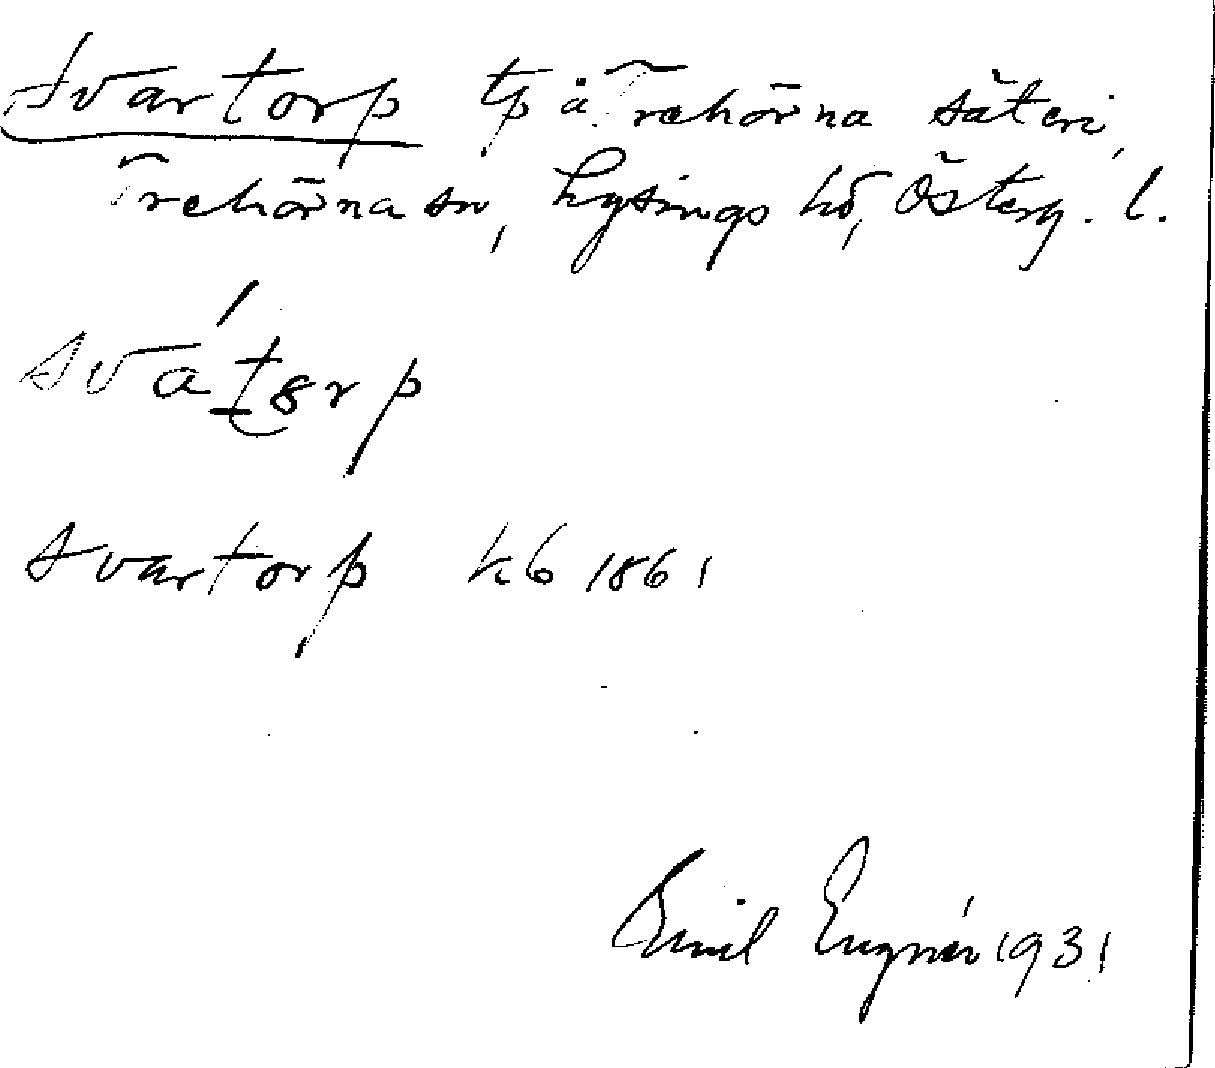 Svartorp tp å Trehörna säteri,
Trehörna sn, Lysings hd, Österg. l.
svát8rp
Svartorp kb 1861
Emil Engnér 1931